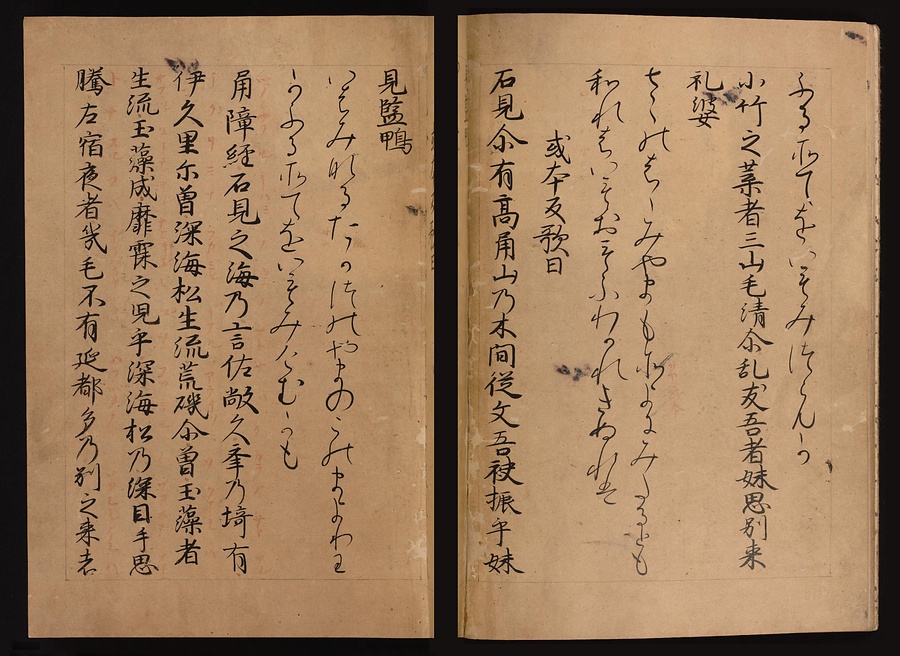 ふるそてをいもみつらんか
小竹之葉者三山毛清尓乱友吾者妹思別来
礼婆
さゝのはゝみやまもそよにみたるとも
和れはいもおもふわかれきぬれは
或本反歌曰
石見尓有高角山乃木間従文吾袂振乎妹
見監鴨
いはみなるたかつのやまのこのまよりわ
ふるそてをいもみけむかも
角障経石見之海乃言佐敝久辛乃埼有
伊久里尓曽深海松生流荒礒尓曽玉藻者
生流玉藻成靡寐之児乎深海松乃深目手思
騰左宿夜者幾毛不有延都多乃別之来者